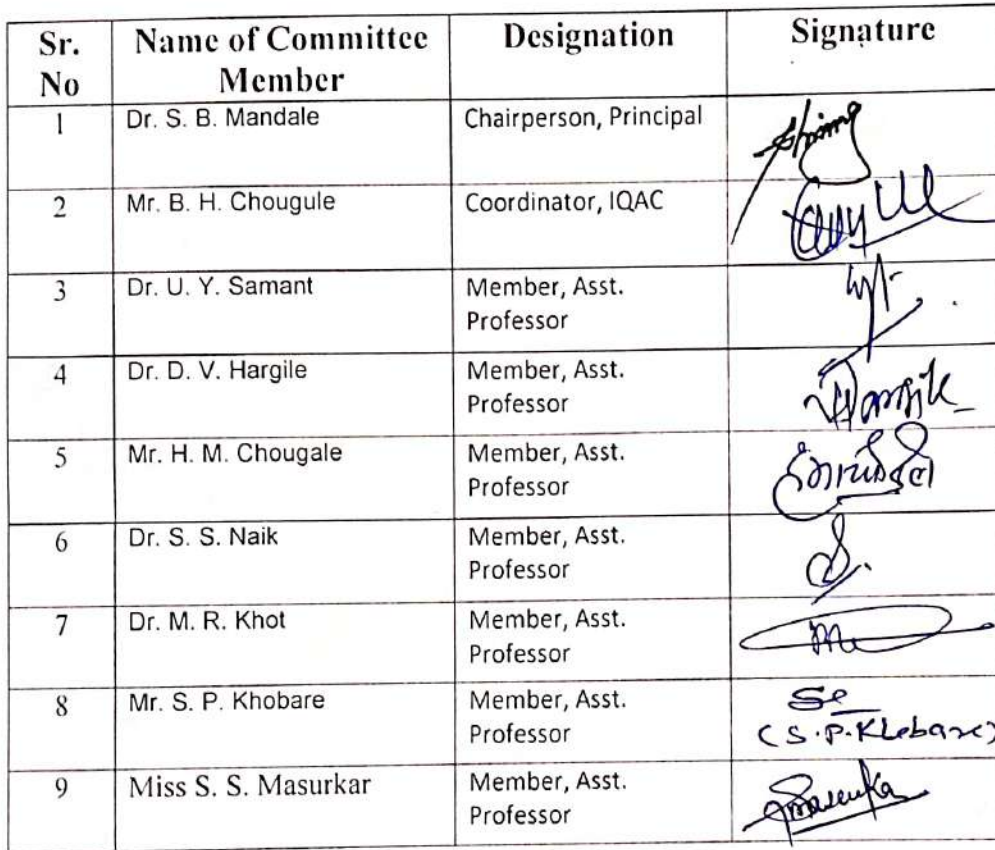 Sr. No Name of Committee Member Designation Signature
1 Dr. S. B. Mandale Chairperson, Principal
2 Mr. B. H. Chougule Coordinator, IQAC
3 Dr. U. Y. Samant Member, Asst. Professor
4 Dr. D. V. Hargile Member, Asst. Professor
5 Mr. H. M. Chougale Member, Asst. Professor
6 Dr. S. S. Naik Member, Asst. Professor
7 Dr. M. R. Khot Member, Asst. Professor
8 Mr. S. P. Khobare Member, Asst. Professor (S.P.Khobare)
9 Miss S. S. Masurkar Member, Asst. Professor